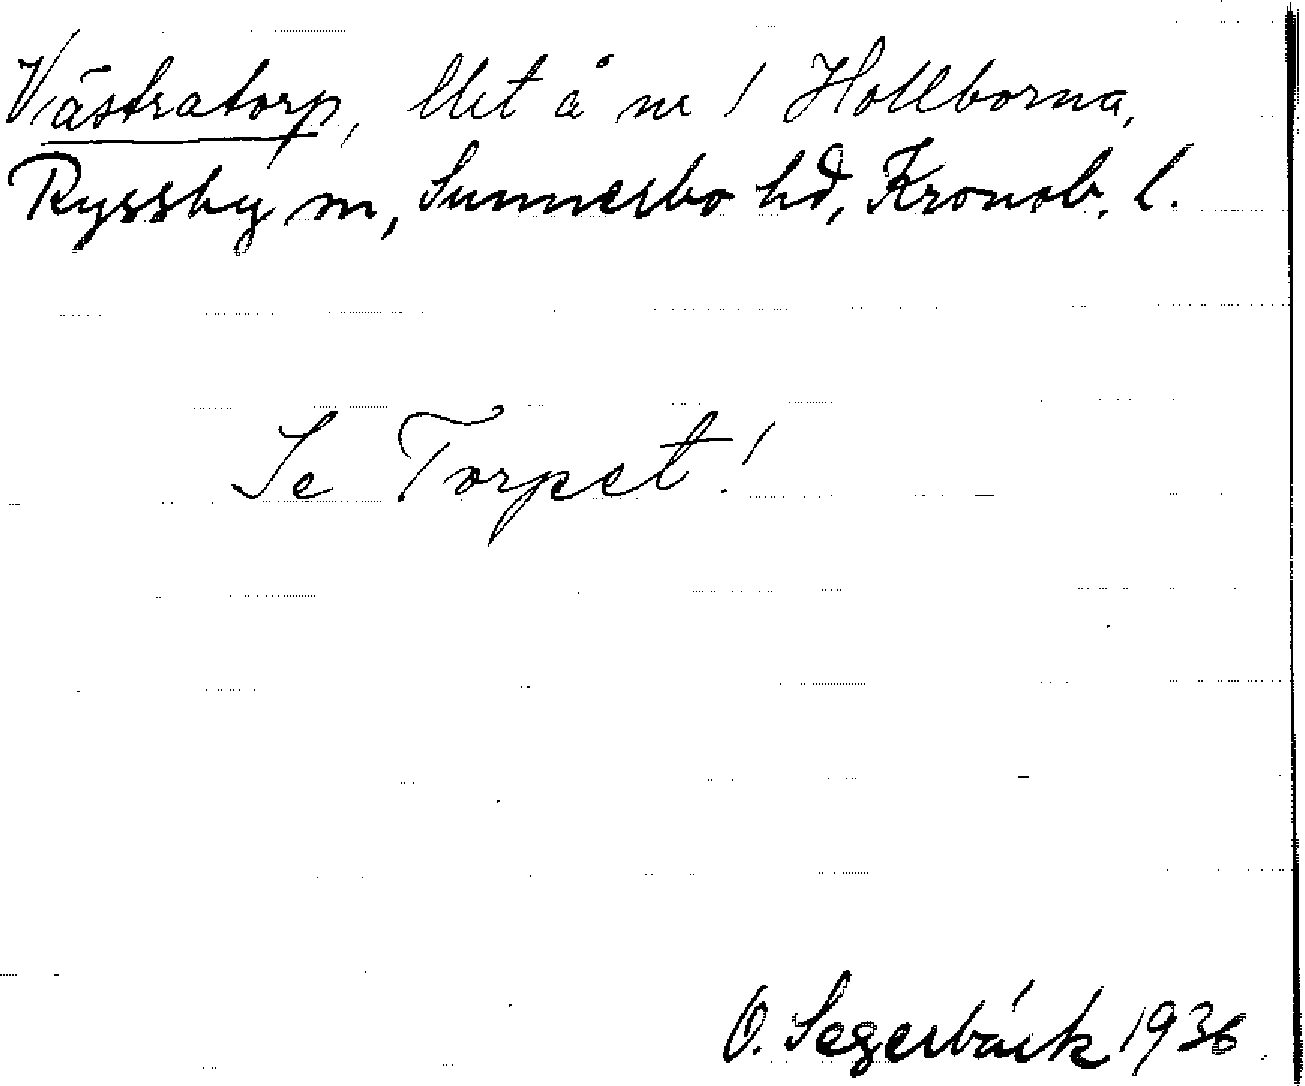 Västratorp, llet å nr 1 Hollborna,
Ryssby sn, Sunnerbo hd, Kronob. l.
Se Torpet!
O. Segerbäck 1936